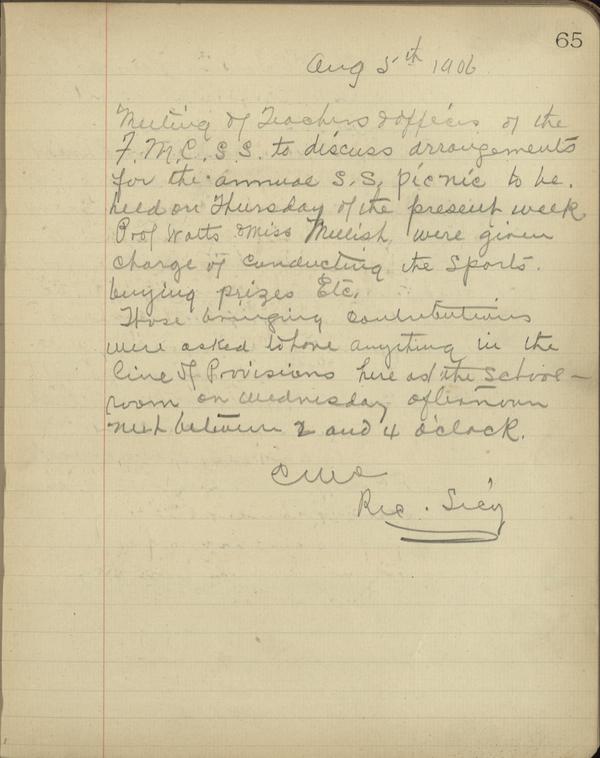 65
Aug 5th 1906
Meeting of Teachers & officers of the
F. M. C. S. S. to discuss arrangements
for the annual S. S. picnic to be
held on Thursday of the present week
Prof Watts & Miss Mellish were given
charge of conducting the Sports.
buying prizes Etc.
Those bringing contributions
were asked to have anything in the
line of Provisions here at the School-
room on Wednesday afternoon
next between 2 and 4 o'clock.
Rec. Sec'y